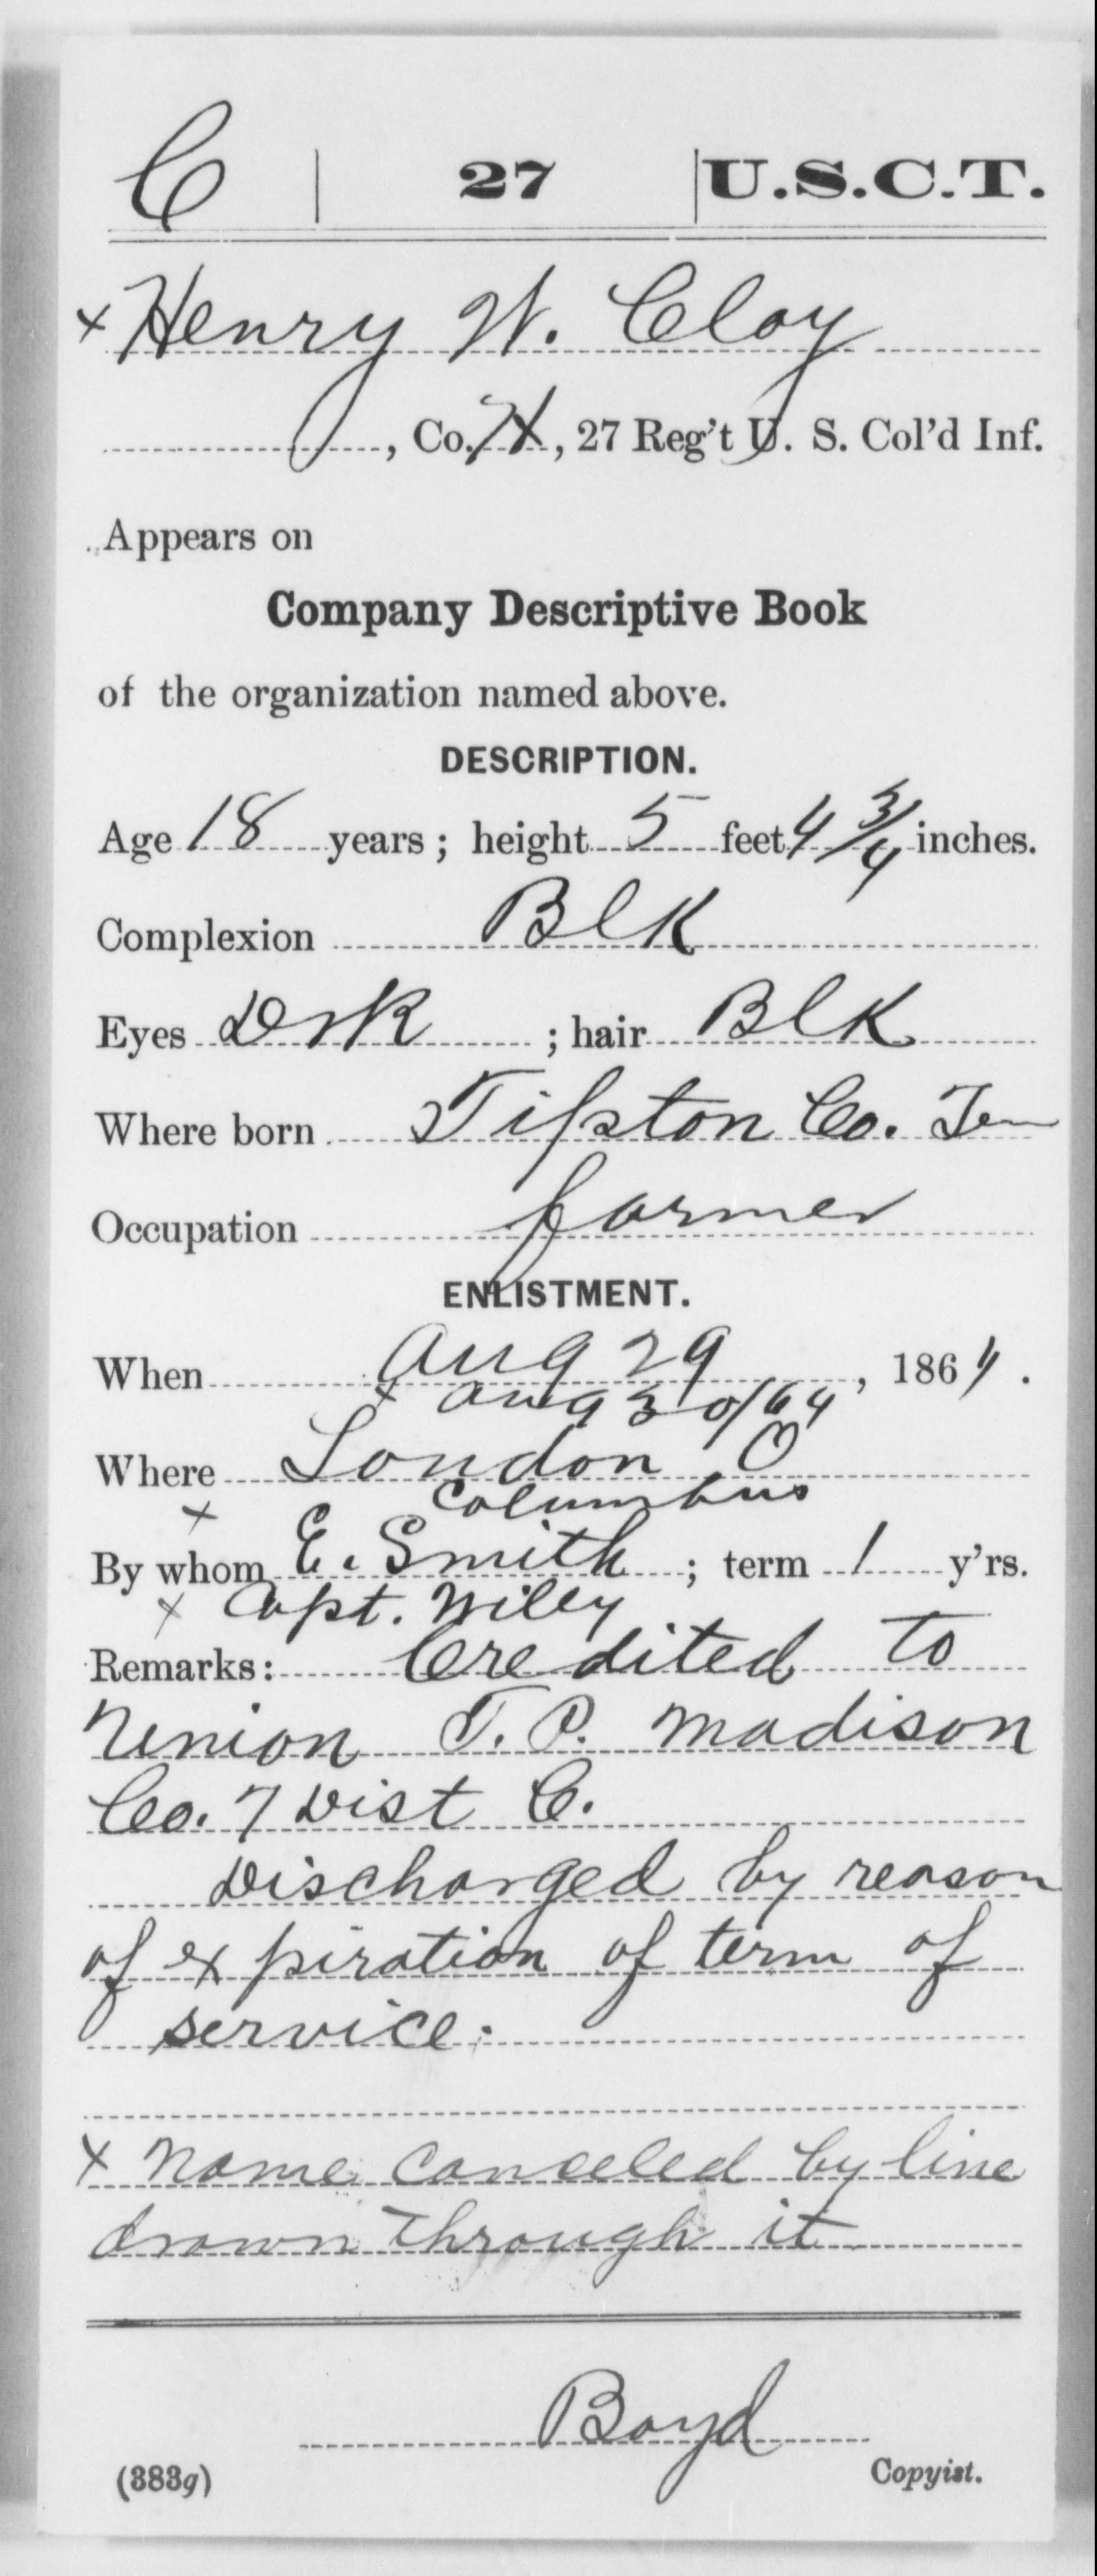 C | 27 | U.S.C.T.
x Henry W. Clay
, Co. H, 27 Reg't U. S. Col'd Inf.
Appears on
Company Descriptive Book
of the organization named above.
DESCRIPTION.
Age 18 years; height 5 feet 4 3/4 inches.
Complexion Blk
Eyes Drk; hair Blk
Where born Tipston Co. Ten
Occupation farmer
ENLISTMENT.
When Aug 29, 1864.
x Aug 30/64
Where London O
x Columbus
By whom E. Smith; term 1 y'rs.
x Capt. Wiley
Remarks: Credited to
Union T. P. Madison
Co. 7 Dist C.
Discharged by reason
of expiration of term of
service.
x Name canceled by line
drawn through it
Boyd
(383g) Copyist.